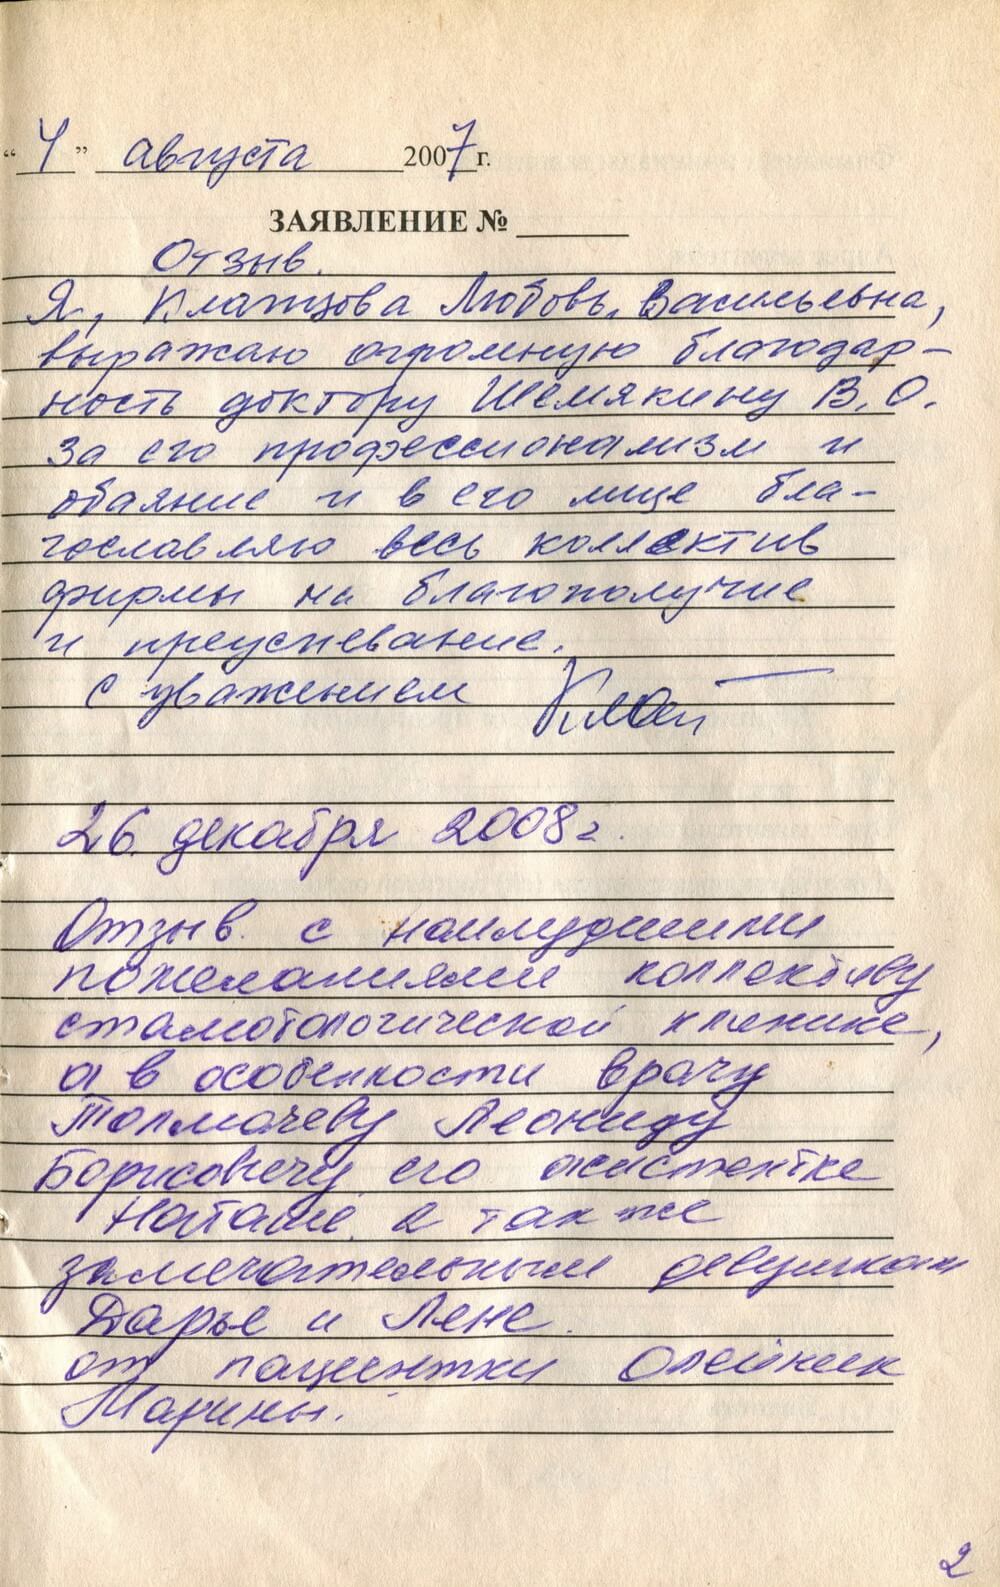 "4" августа 2007 г.
ЗАЯВЛЕНИЕ №
Отзыв.
Я, Любовь Васильевна,
выражаю огромную благодар-
ность доктору Шемякину В.О.
за его профессионализм и
обаяние и в его лице бла-
гославляю весь коллектив
фирмы на благополучие
и преуспевание.
С уважением
26 декабря 2008 г.
Отзыв с наилучшими
пожеланиями коллективу
стамотологической клинике,
а в особенности врачу
Толмачеву Леониду
Борисовичу, его ассистентке
Наташе, а так же
замечательным девушкам
Дарье и Лене.
от пациентки Олейник
Марины.
2